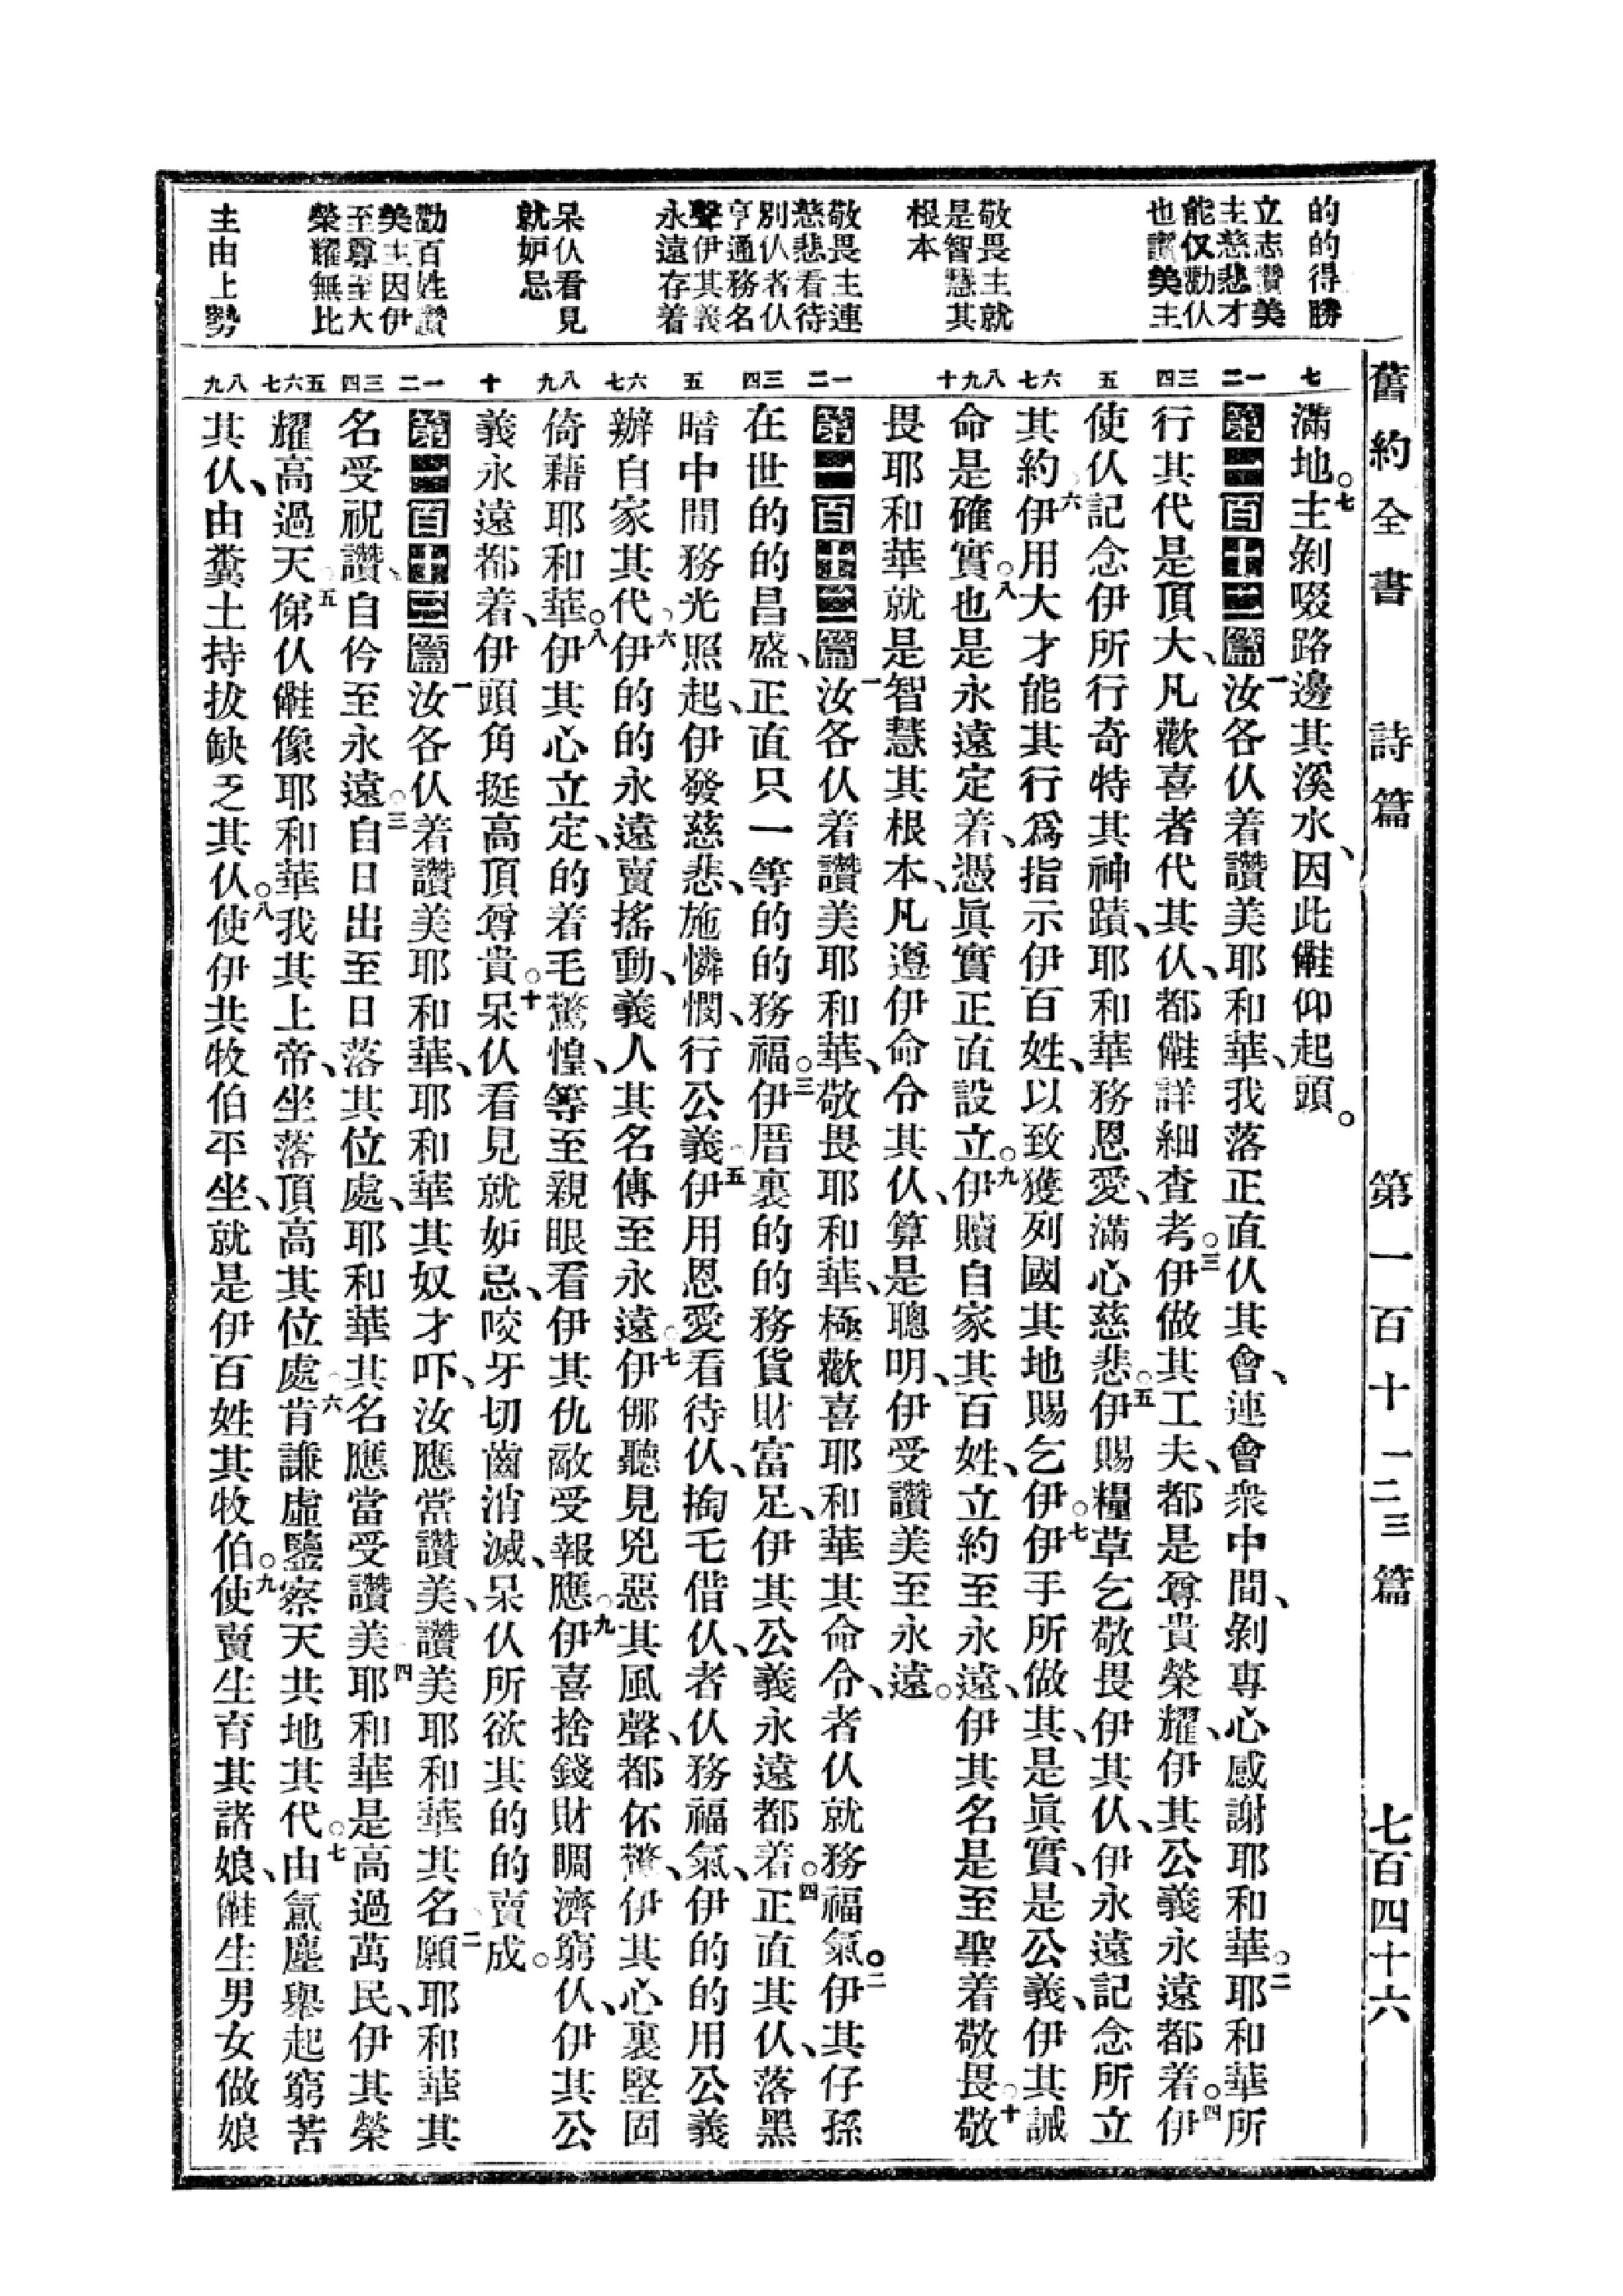 舊約全書 詩篇 第一百十一二三篇 七百四十六
的的得勝
立志讚美
主慈悲才
能仅勸仈
也讚美主
敬畏主就
是智慧其
根本
敬畏主連
慈悲看待
別仈者仈
亨通務名
聲伊其義
永遠存着
呆仈看見
就妒忌
勸百姓讚
美主因伊
至尊至大
榮耀無比
主由上勢
七 一二 三四 五 六七 八九十 一二 三四 五 六七 八九 十 一二 三四 五六七 八九
滿地。七主剝啜路邊其溪水、因此㒕仰起頭。
第一百十一篇一汝各仈着讚美耶和華、我落正直仈其會、連會衆中間、剝專心感謝耶和華。二耶和華所
行其代是頂大、凡歡喜者代其仈、都㒕詳細查考。三伊做其工夫、都是尊貴榮耀、伊其公義永遠都着。四伊
使仈記念伊所行奇特其神蹟、耶和華務恩愛、滿心慈悲。五伊賜糧草乞敬畏伊其仈、伊永遠記念所立
其約。六伊用大才能其行爲指示伊百姓、以致獲列國其地賜乞伊。七伊手所做其、是眞實、是公義、伊其誡
命是確實。八也是永遠定着、憑眞實正直設立。九伊贖自家其百姓、立約至永遠、伊其名是至聖着敬畏。十敬
畏耶和華就是智慧其根本、凡遵伊命令其仈、算是聰明、伊受讚美至永遠。
第一百十二篇一汝各仈着讚美耶和華、敬畏耶和華、極歡喜耶和華其命令、者仈就務福氣。二伊其仔孫
在世的的昌盛、正直只一等的的務福。三伊厝裏的的務貨財富足、伊其公義永遠都着。四正直其仈、落黑
暗中間務光照起、伊發慈悲、施憐憫、行公義。五伊用恩愛看待仈、掏毛借仈、者仈務福氣、伊的的用公義
辦自家其代。六伊的的永遠賣搖動、義人其名傳至永遠。七伊㑚聽見兇惡其風聲、都伓驚、伊其心裏堅固
倚藉耶和華。八伊其心立定、的着毛驚惶、等至親眼看伊其仇敵受報應。九伊喜捨錢財賙濟窮仈、伊其公
義永遠都着、伊頭角挺高頂尊貴。十呆仈看見就妒忌、咬牙切齒消滅、呆仈所欲其的的賣成。
第一百十三篇一汝各仈着讚美耶和華、耶和華其奴才吓、汝應當讚美、讚美耶和華其名。二願耶和華其
名受祝讚、自仱至永遠。三自日出至日落其位處、耶和華其名應當受讚美。四耶和華是高過萬民、伊其榮
耀高過天。五㑚仈㒕像耶和華我其上帝、坐落頂高其位處。六肯謙虛鑒察天共地其代。七由氣塵舉起窮苦
其仈、由糞土持拔缺乏其仈。八使伊共牧伯平坐、就是伊百姓其牧伯。九使賣生育其諸娘、㒕生男女做娘